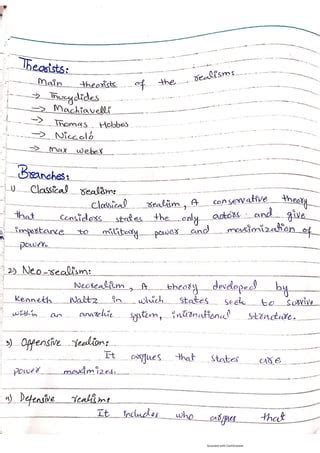 Theorists:
Main theorists of the realism:
→ Thucydides
→ Machiavelli
→ Thomas Hobbes
→ Niccoló
→ Max Weber
Branches:
1) Classical realism:
Classical realism, A conservative theory
that considers states the only actors and give
importance to military power and maximization of
power.
2) Neo-realism:
Neorealism, A theory developed by
Kenneth Waltz in which states seek to survive
within an anarchic system, international structure.
3) Offensive realism:
It argues that states are
power maximizes.
4) Defensive realism:
It includes who argues that
Scanned with CamScanner